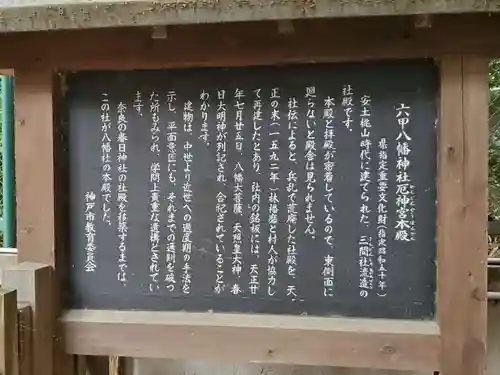 六甲八幡神社厄神宮本殿
県指定重要文化財(指定昭和五十年)
安土桃山時代に建てられた、三間社流造の
社殿です。
本殿と拝殿が密着しているので、東側面に
廻らないと殿舎は見られません。
社伝によると、兵乱で焼席した社殿を、天
正の末(一五九二年)林播磨と村人が協力し
て再建したとあり、社内の銘板には、天正廿
年七月廿五日、八幡大菩薩、天照皇大神、春
日大明神が列記され、合祀されていることが
わかります。
建物は、中世より近世への過度期の手法を
示し、平面意匠にも、それまでの通則を破っ
た所もみられ、学問上貴重な遺構とされてい
ます。
奈良の春日神社の社殿を移築するまでは、
この社が八幡社の本殿でした。
神戸市教育委員会